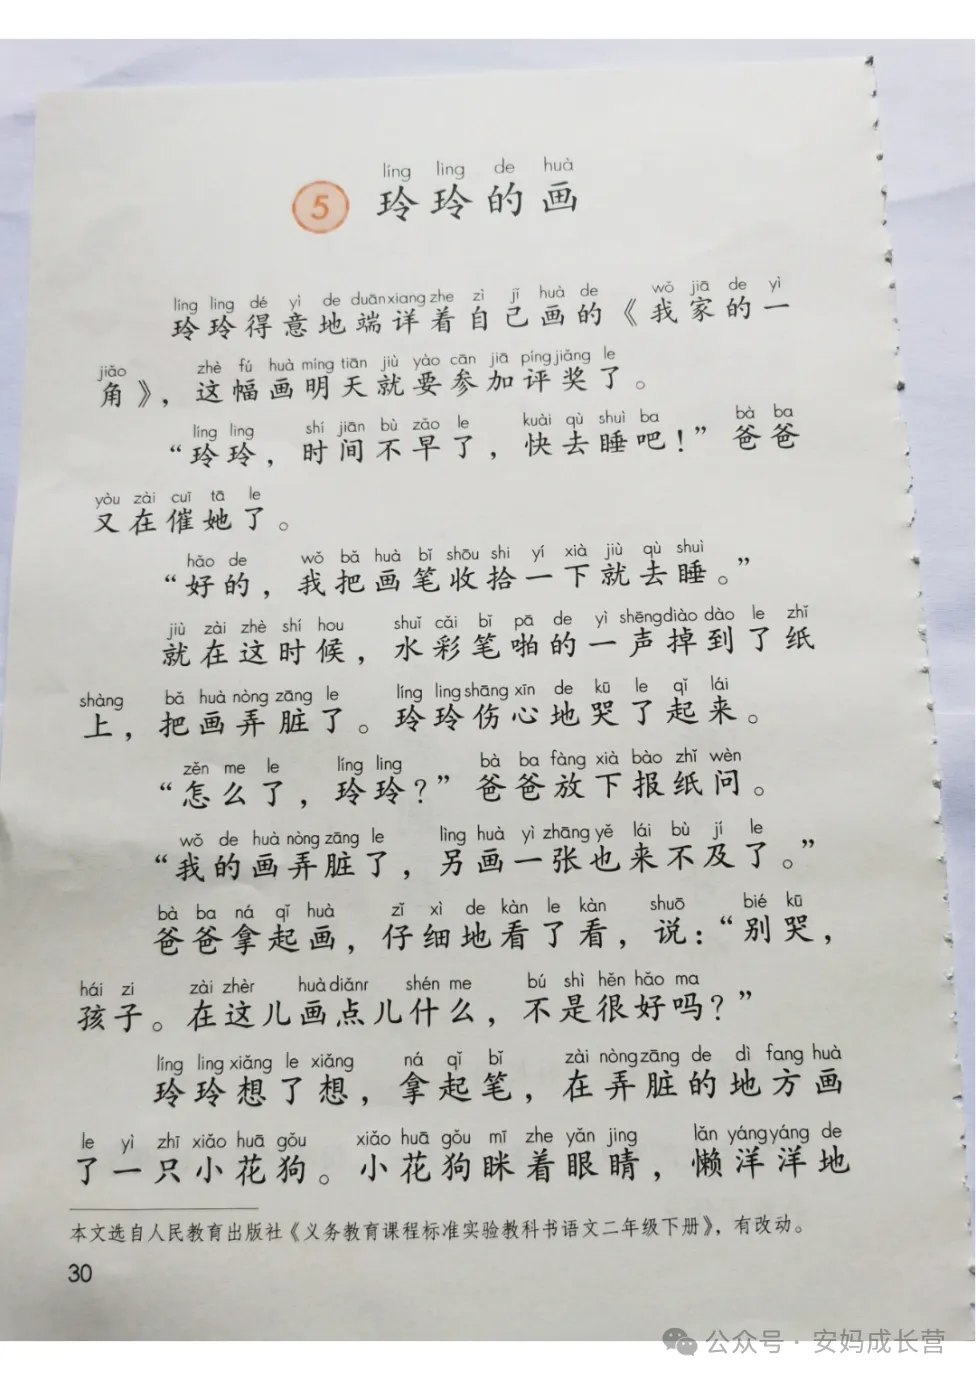 líng ling de huà
5 玲玲的画
líng ling dé yì de duān xiang zhe zì jǐ huà de wǒ jiā de yì
玲玲得意地端详着自己画的《我家的一
jiǎo zhè fú huà míng tiān jiù yào cān jiā píng jiǎng le
角》，这幅画明天就要参加评奖了。
líng ling shí jiān bù zǎo le kuài qù shuì ba bà ba
“玲玲，时间不早了，快去睡吧！”爸爸
yòu zài cuī tā le
又在催她了。
hǎo de wǒ bǎ huà bǐ shōu shi yí xià jiù qù shuì
“好的，我把画笔收拾一下就去睡。”
jiù zài zhè shí hou shuǐ cǎi bǐ pā de yì shēng diào dào le zhǐ
就在这时候，水彩笔啪的一声掉到了纸
shàng bǎ huà nòng zāng le líng ling shāng xīn de kū le qǐ lái
上，把画弄脏了。玲玲伤心地哭了起来。
zěn me le líng ling bà ba fàng xià bào zhǐ wèn
“怎么了，玲玲？”爸爸放下报纸问。
wǒ de huà nòng zāng le lìng huà yì zhāng yě lái bù jí le
“我的画弄脏了，另画一张也来不及了。”
bà ba ná qǐ huà zǐ xì de kàn le kàn shuō bié kū
爸爸拿起画，仔细地看了看，说：“别哭，
hái zi zài zhèr huà diǎnr shén me bú shì hěn hǎo ma
孩子。在这儿画点儿什么，不是很好吗？”
líng ling xiǎng le xiǎng ná qǐ bǐ zài nòng zāng de dì fang huà
玲玲想了想，拿起笔，在弄脏的地方画
le yì zhī xiǎo huā gǒu xiǎo huā gǒu mī zhe yǎn jing lǎn yáng yáng de
了一只小花狗。小花狗眯着眼睛，懒洋洋地
本文选自人民教育出版社《义务教育课程标准实验教科书语文二年级下册》，有改动。
30
公众号 · 安妈成长营